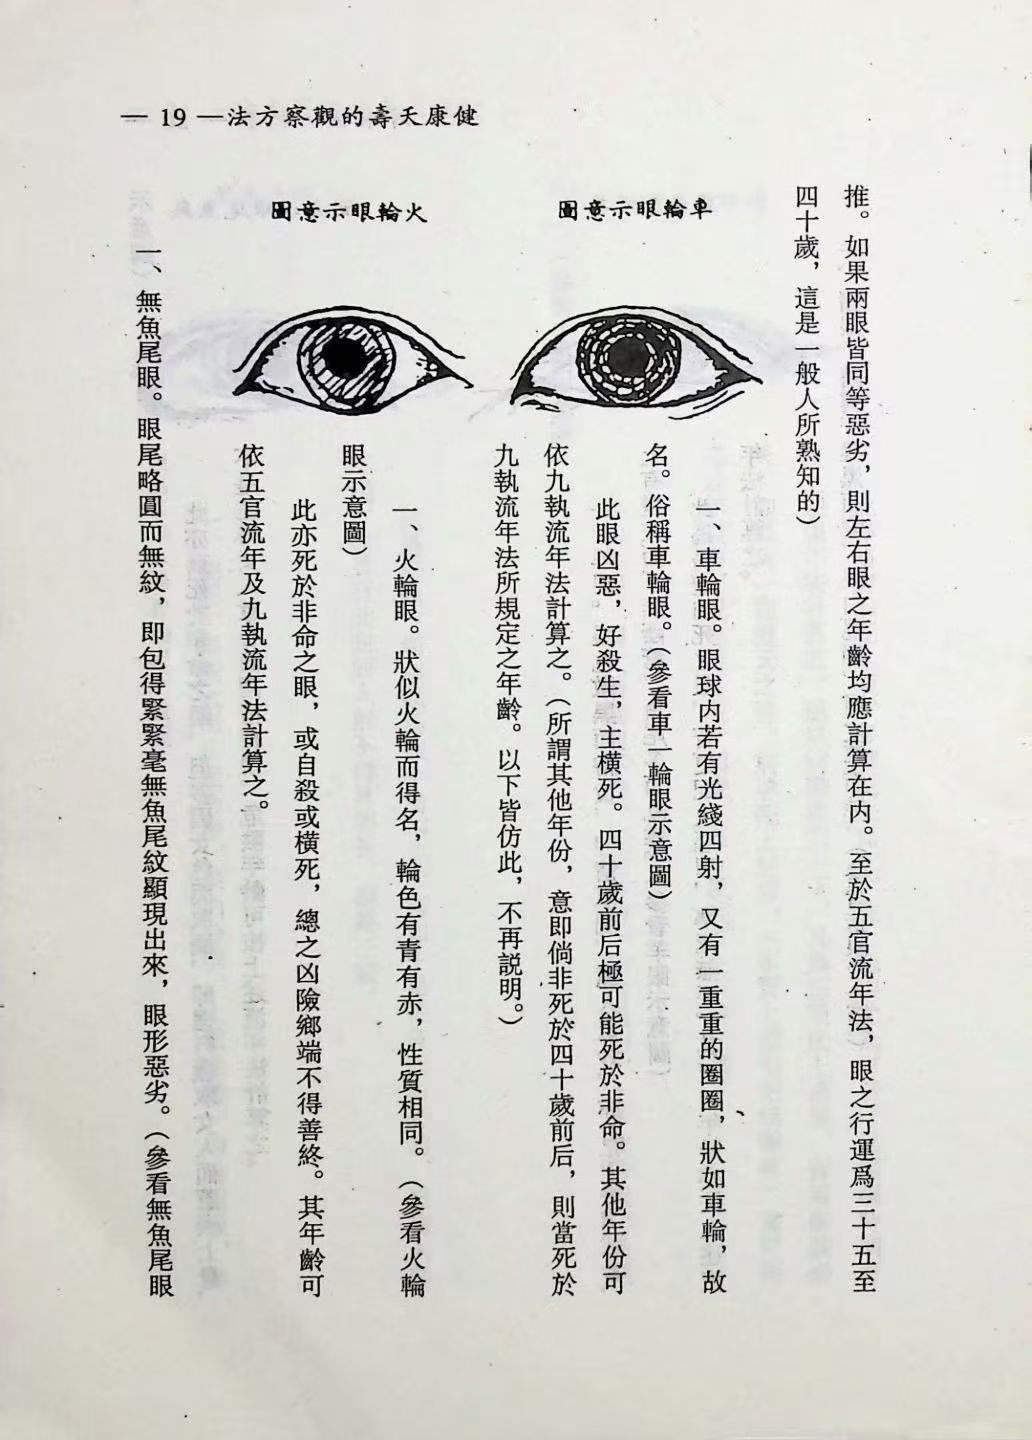 健康夭壽的觀察方法— 19 —
推。如果兩眼皆同等惡劣，則左右眼之年齡均應計算在内。至於五官流年法，眼之行運爲三十五至
四十歲，這是一般人所熟知的）
車輪眼示意圖
一、車輪眼。眼球内若有光綫四射，又有一重重的圈圈，狀如車輪，故
名。俗稱車輪眼。（參看車一輪眼示意圖）
此眼凶惡，好殺生，主橫死。四十歲前后極可能死於非命。其他年份可
依九執流年法計算之。（所謂其他年份，意即倘非死於四十歲前后，則當死於
九執流年法所規定之年齡。以下皆仿此，不再説明。）
火輪眼示意圖
一、火輪眼。狀似火輪而得名，輪色有青有赤，性質相同。（參看火輪
眼示意圖）
此亦死於非命之眼，或自殺或橫死，總之凶險鄉端不得善終。其年齡可
依五官流年及九執流年法計算之。
一、無魚尾眼。眼尾略圓而無紋，即包得緊緊毫無魚尾紋顯現出來，眼形惡劣。（參看無魚尾眼